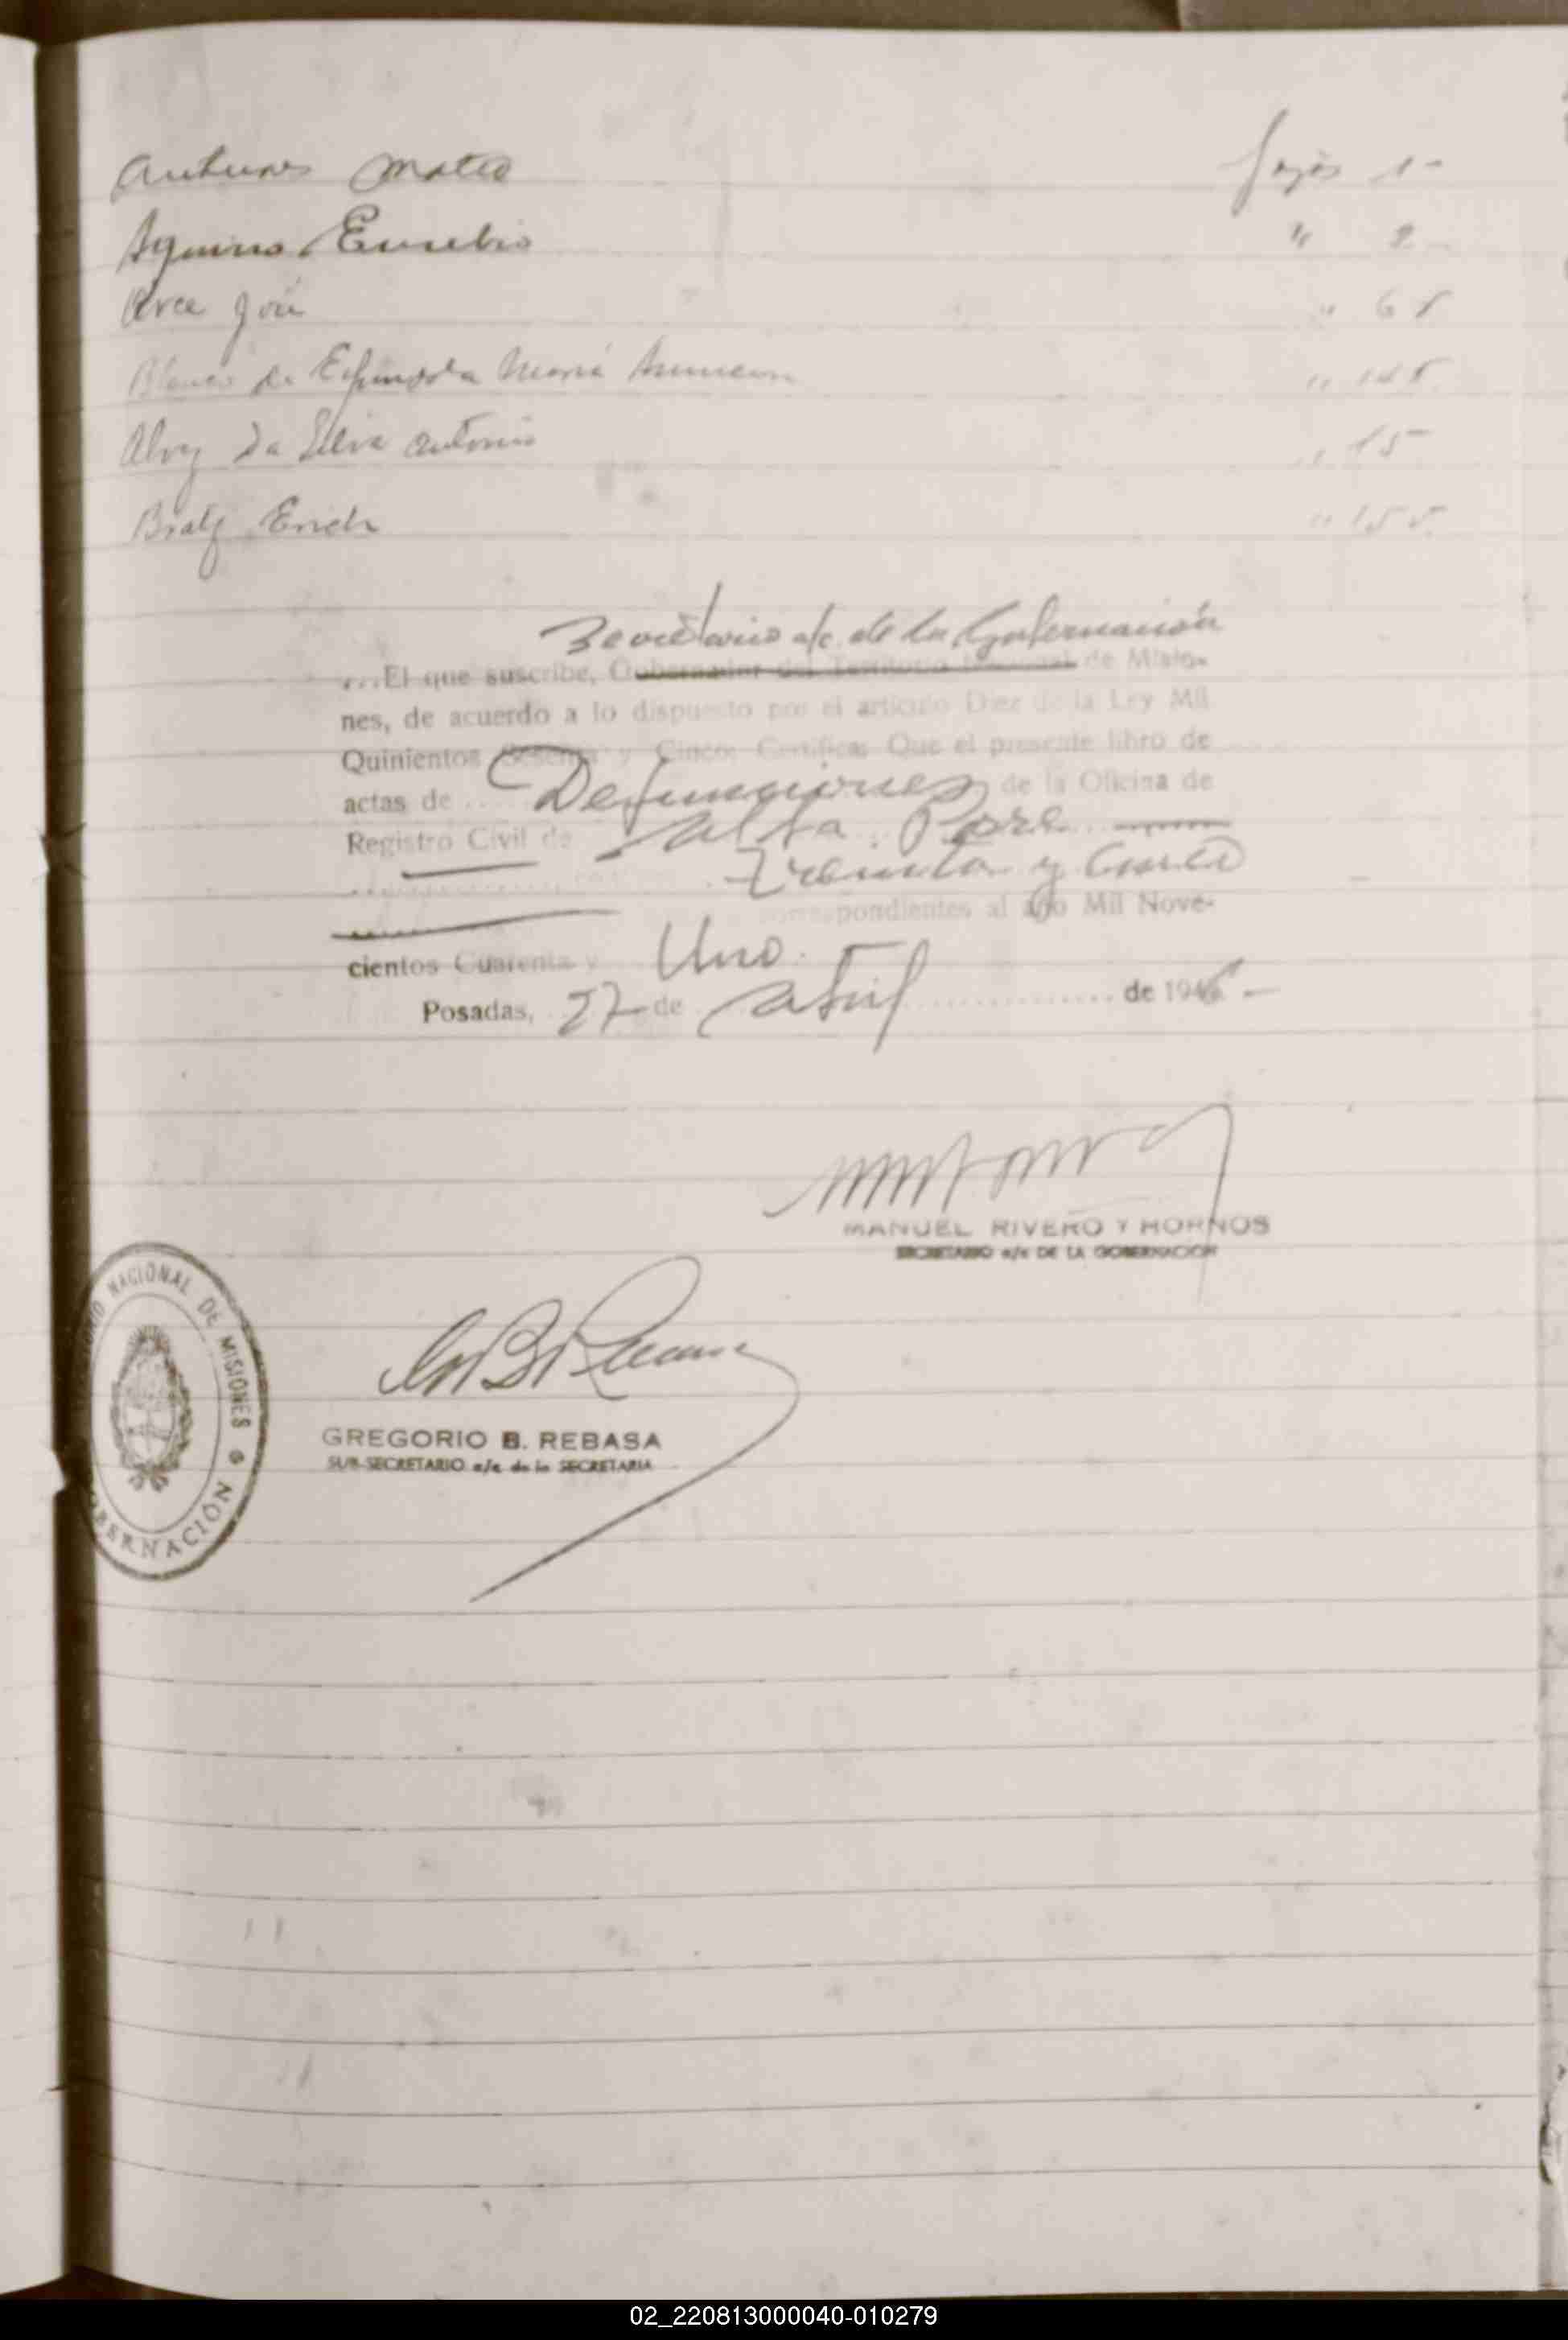 Antunes Mateo fojas 1-
Aquino Eusebio " 2
Arce José " 6 v
Blanco de Espindola María Asuncion " 14 v
Alvez Da Silva Antonio " 15
Bratz Erich " 15 v
Secretario a/c. de la Gobernación
...El que suscribe, Gobernador del Territorio Nacional de Misio-
nes, de acuerdo a lo dispuesto por el artículo Diez de la Ley Mil
Quinientos Sesenta y Cinco: Certifica: Que el presente libro de
actas de Defunciones de la Oficina de
Registro Civil de
Treinta y
correspondientes al año Mil Nove-
cientos Cuarenta y Uno.
Posadas, 27 de abril de 194
MANUEL RIVERO Y HORNOS
SECRETARIO a/c DE LA GOBERNACION
NACIONAL DE MISIONES
GOBERNACIÓN
GREGORIO B. REBASA
SUB-SECRETARIO a/c de la SECRETARIA
02_220813000040-010279